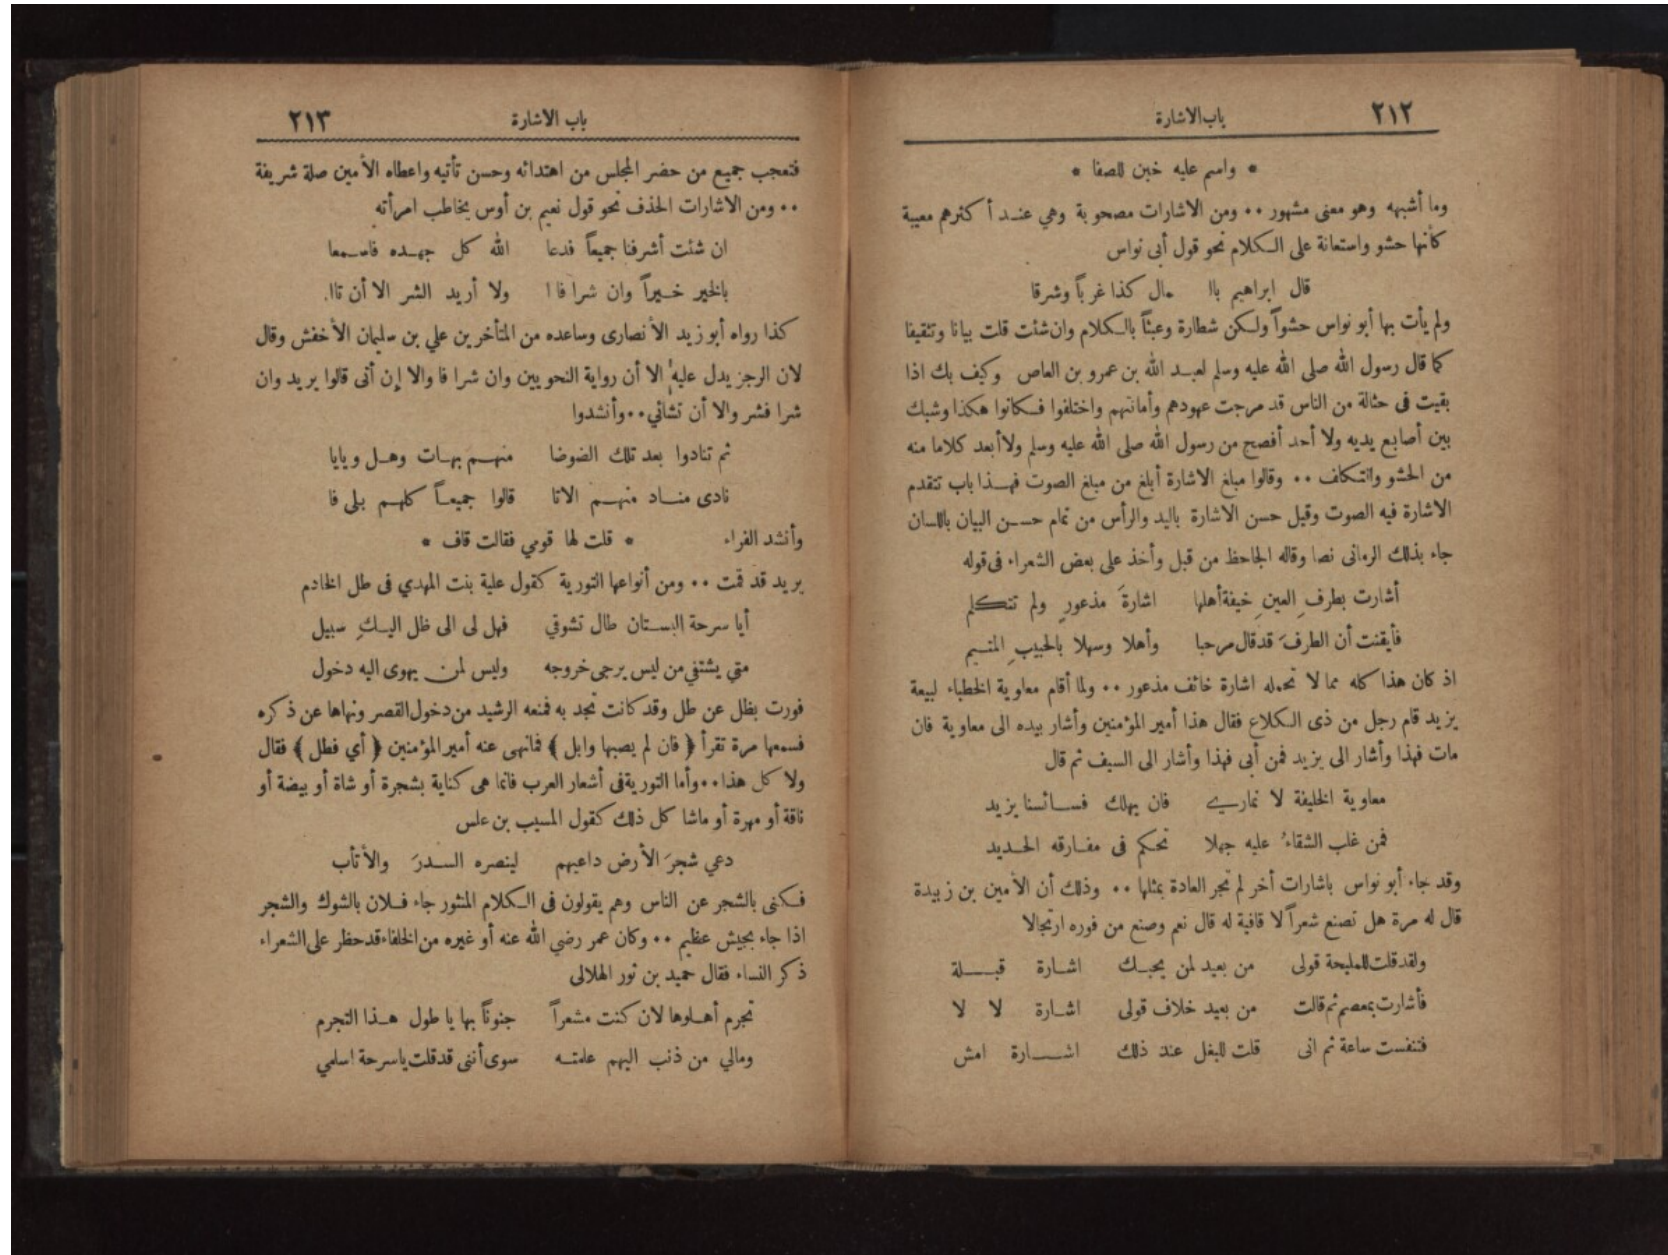 ٢١٢
باب الاشارة
* واسم عليه خبن للصفا *
وما أشبهه وهو معنى مشهور ٠٠ ومن الاشارات مصحوبة وهي عند أكثرهم معيبة
كأنها حشو واستعانة على الكلام نحو قول أبى نواس
قال ابراهيم بالـ مال كذا غرباً وشرقا
ولم يأت بها أبو نواس حشواً ولكن شطارة وعبثاً بالكلام وان شئت قلت بيانا وتثقيفا
كما قال رسول الله صلى الله عليه وسلم لعبد الله بن عمرو بن العاص وكيف بك اذا
بقيت فى حثالة من الناس قد مرجت عهودهم وأماناتهم واختلفوا فكانوا هكذا وشبك
بين أصابع يديه ولا أحد أفصح من رسول الله صلى الله عليه وسلم ولا أبعد كلاما منه
من الحشو والتكلف ٠٠ وقالوا مبلغ الاشارة أبلغ من مبلغ الصوت فهذا باب تتقدم
الاشارة فيه الصوت وقيل حسن الاشارة باليد والرأس من تمام حسن البيان باللسان
جاء بذلك الرمانى نصا وقاله الجاحظ من قبل وأخذ على بعض الشعراء فى قوله
أشارت بطرفِ العينِ خيفة أهلها اشارةَ مذعورٍ ولم تتكلم
فأيقنت أن الطرفَ قد قال مرحبا وأهلا وسهلا بالحبيبِ المتيم
اذ كان هذا كله مما لا تحمله اشارة خائف مذعور ٠٠ ولما أقام معاوية الخطباء لبيعة
يزيد قام رجل من ذى الكلاع فقال هذا أمير المؤمنين وأشار بيده الى معاوية فان
مات فهذا وأشار الى يزيد فمن أبى فهذا وأشار الى السيف ثم قال
معاوية الخليفة لا نمارى فان يهلك فسائسنا يزيد
فمن غلب الشقاءُ عليه جهلا تحكم فى مفارقه الحديد
وقد جاء أبو نواس باشارات أخر لم تجر العادة بمثلها ٠٠ وذلك أن الأمين بن زبيدة
قال له مرة هل تصنع شعراً لا قافية له قال نعم وصنع من فوره ارتجالا
ولقد قلت للمليحة قولى من بعيد لمن يحبك اشارة قبلة
فأشارت بمعصم ثم قالت من بعيد خلاف قولى اشارة لا لا
فتنفست ساعة ثم انى قلت للبغل عند ذلك اشارة امش
٢١٣
باب الاشارة
فتعجب جميع من حضر المجلس من اهتدائه وحسن تأتيه واعطاه الأمين صلة شريفة
٠٠ ومن الاشارات الحذف نحو قول نعيم بن أوس يخاطب امرأته
ان شئت أشرفنا جميعاً فدعا الله كل جهده فاسمعا
بالخير خيراً وان شرا فاا ولا أريد الشر الا أن تاا
كذا رواه أبو زيد الأنصارى وساعده من المتأخرين علي بن سليمان الأخفش وقال
لان الرجز يدل عليه الا أن رواية النحويين وان شرا فا والا إن أتى قالوا يريد وان
شرا فشر والا أن تشائي ٠٠ وأنشدوا
ثم تنادوا بعد تلك الضوضا منهم بهات وهل ويايا
نادى مناد منهم الاتا قالوا جميعاً كلهم بلى فا
وأنشد الفراء * قلت لها قومي فقالت قاف *
يريد قد قمت ٠٠ ومن أنواعها التورية كقول علية بنت المهدي فى طل الخادم
أيا سرحة البستان طال تشوقي فهل لى الى ظل اليكِ سبيل
متي يشتفي من ليس يرجى خروجه وليس لمن يهوى اليه دخول
فورت بظل عن طل وقد كانت تجد به فمنعه الرشيد من دخول القصر ونهاها عن ذكره
فسمعها مرة تقرأ ﴿ فان لم يصبها وابل ﴾ فمانهى عنه أمير المؤمنين ﴿ أي فطل ﴾ فقال
ولا كل هذا ٠٠ وأما التورية فى أشعار العرب فانما هى كناية بشجرة أو شاة أو بيضة أو
ناقة أو مهرة أو ماشا كل ذلك كقول المسيب بن علس
دعي شجرَ الأرض داعيهم لينصره السدرَ والأثأب
فكنى بالشجر عن الناس وهم يقولون فى الكلام المنثور جاء فلان بالشوك والشجر
اذا جاء بجيش عظيم ٠٠ وكان عمر رضي الله عنه أو غيره من الخلفاء قد حظر على الشعراء
ذكر النساء فقال حميد بن ثور الهلالى
تجرم أهلوها لان كنت مشعراً جنوناً بها يا طول هذا التجرم
ومالي من ذنب اليهم علمته سوى أننى قد قلت يا سرحة اسلمي